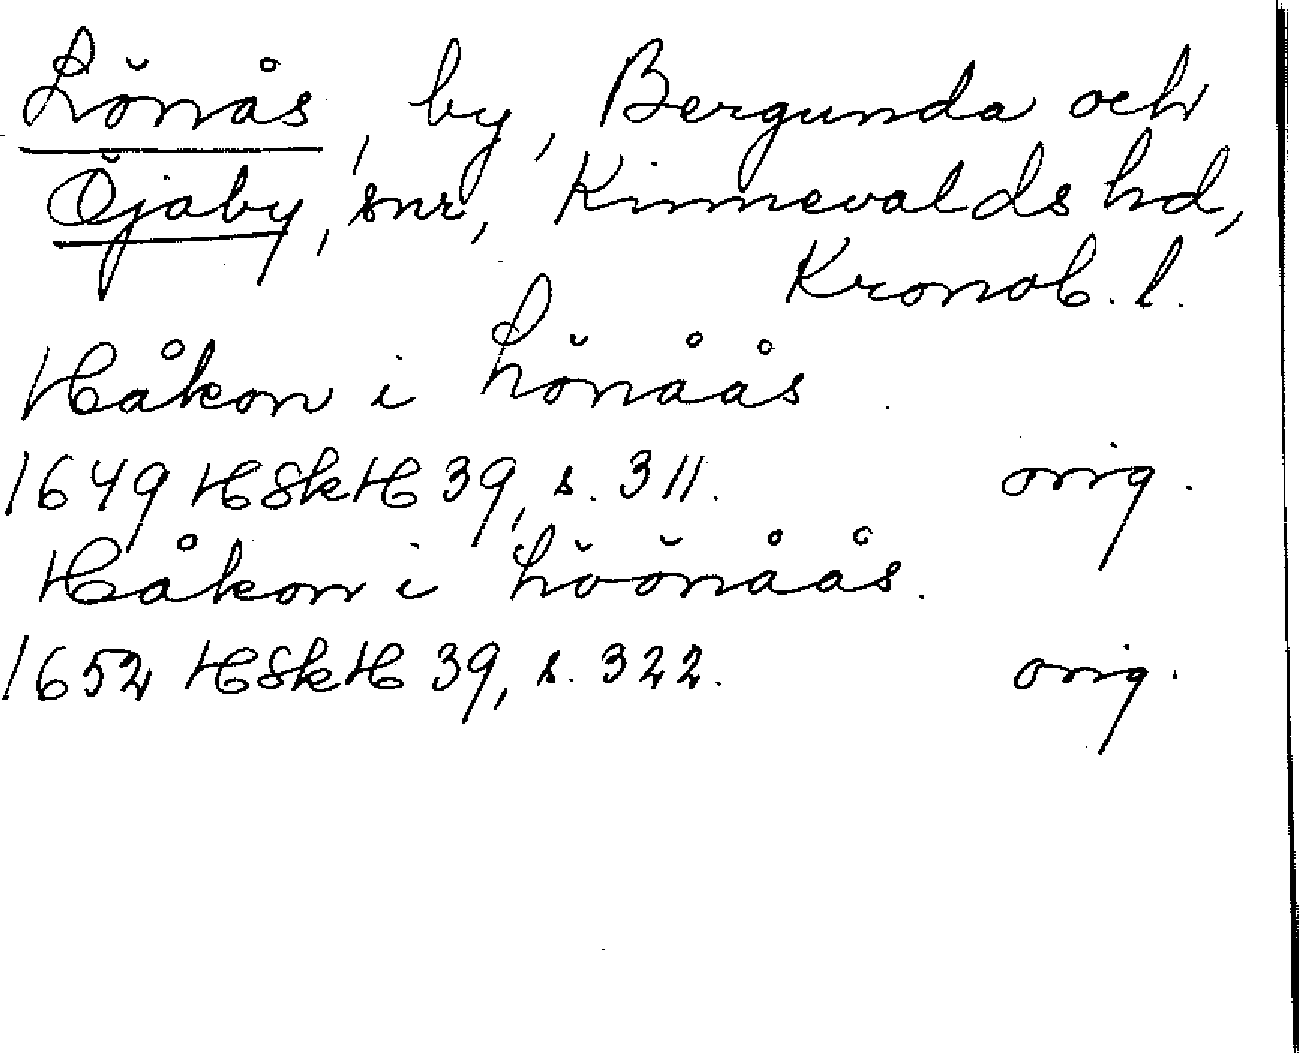 Lönås, by, Bergunda och
Öjaby, snr, Kinnevalds hd,
Kronob. l.
Håkon i Lönåås.
1649 HSkH 39, s. 311. orig.
Håkon i Löönåås.
1652 HSkH 39, s. 322. orig.